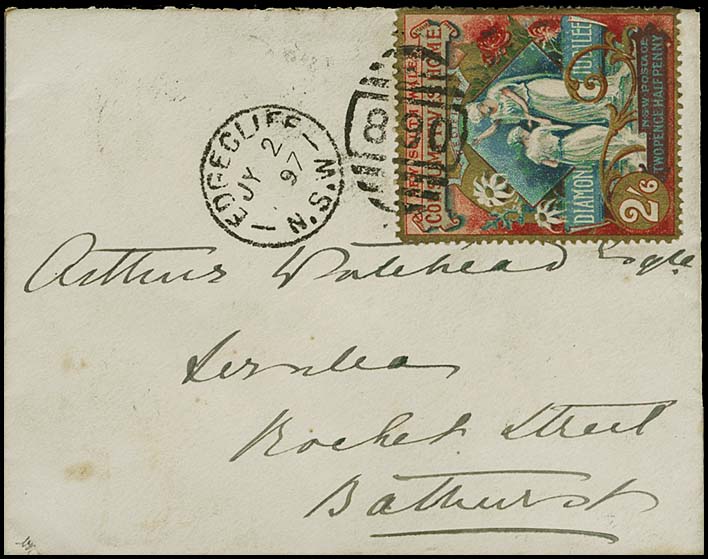 EDGECLIFF
JY 2
97
N.S.W
NEW SOUTH WALES
CONSUMPTIVES HOME
DIAMOND
JUBILEE
N.S.W. POSTAGE
TWOPENCE HALFPENNY
2/6
Arthur Whitehead Esqre
Rochet Street
Bathurst